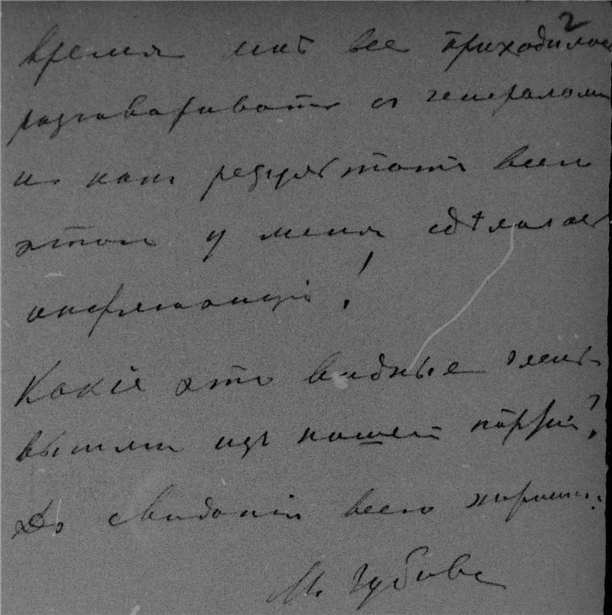 2
время мнѣ все приходилось
разговаривать съ генералами
и какъ результатъ всего
этого у меня сдѣлалась
инфлюэнція!
Какіе это видные члены
вышли изъ нашей партіи?
До свиданія всего хорошаго.